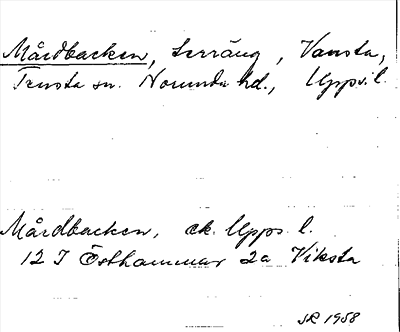 Mårdbacken, terräng, Vansta,
Tensta sn. Norunda hd., Upps. l.
Mårdbacken, ek. Upps. l.
12 I Östhammar 2a Viksta
SR 1958